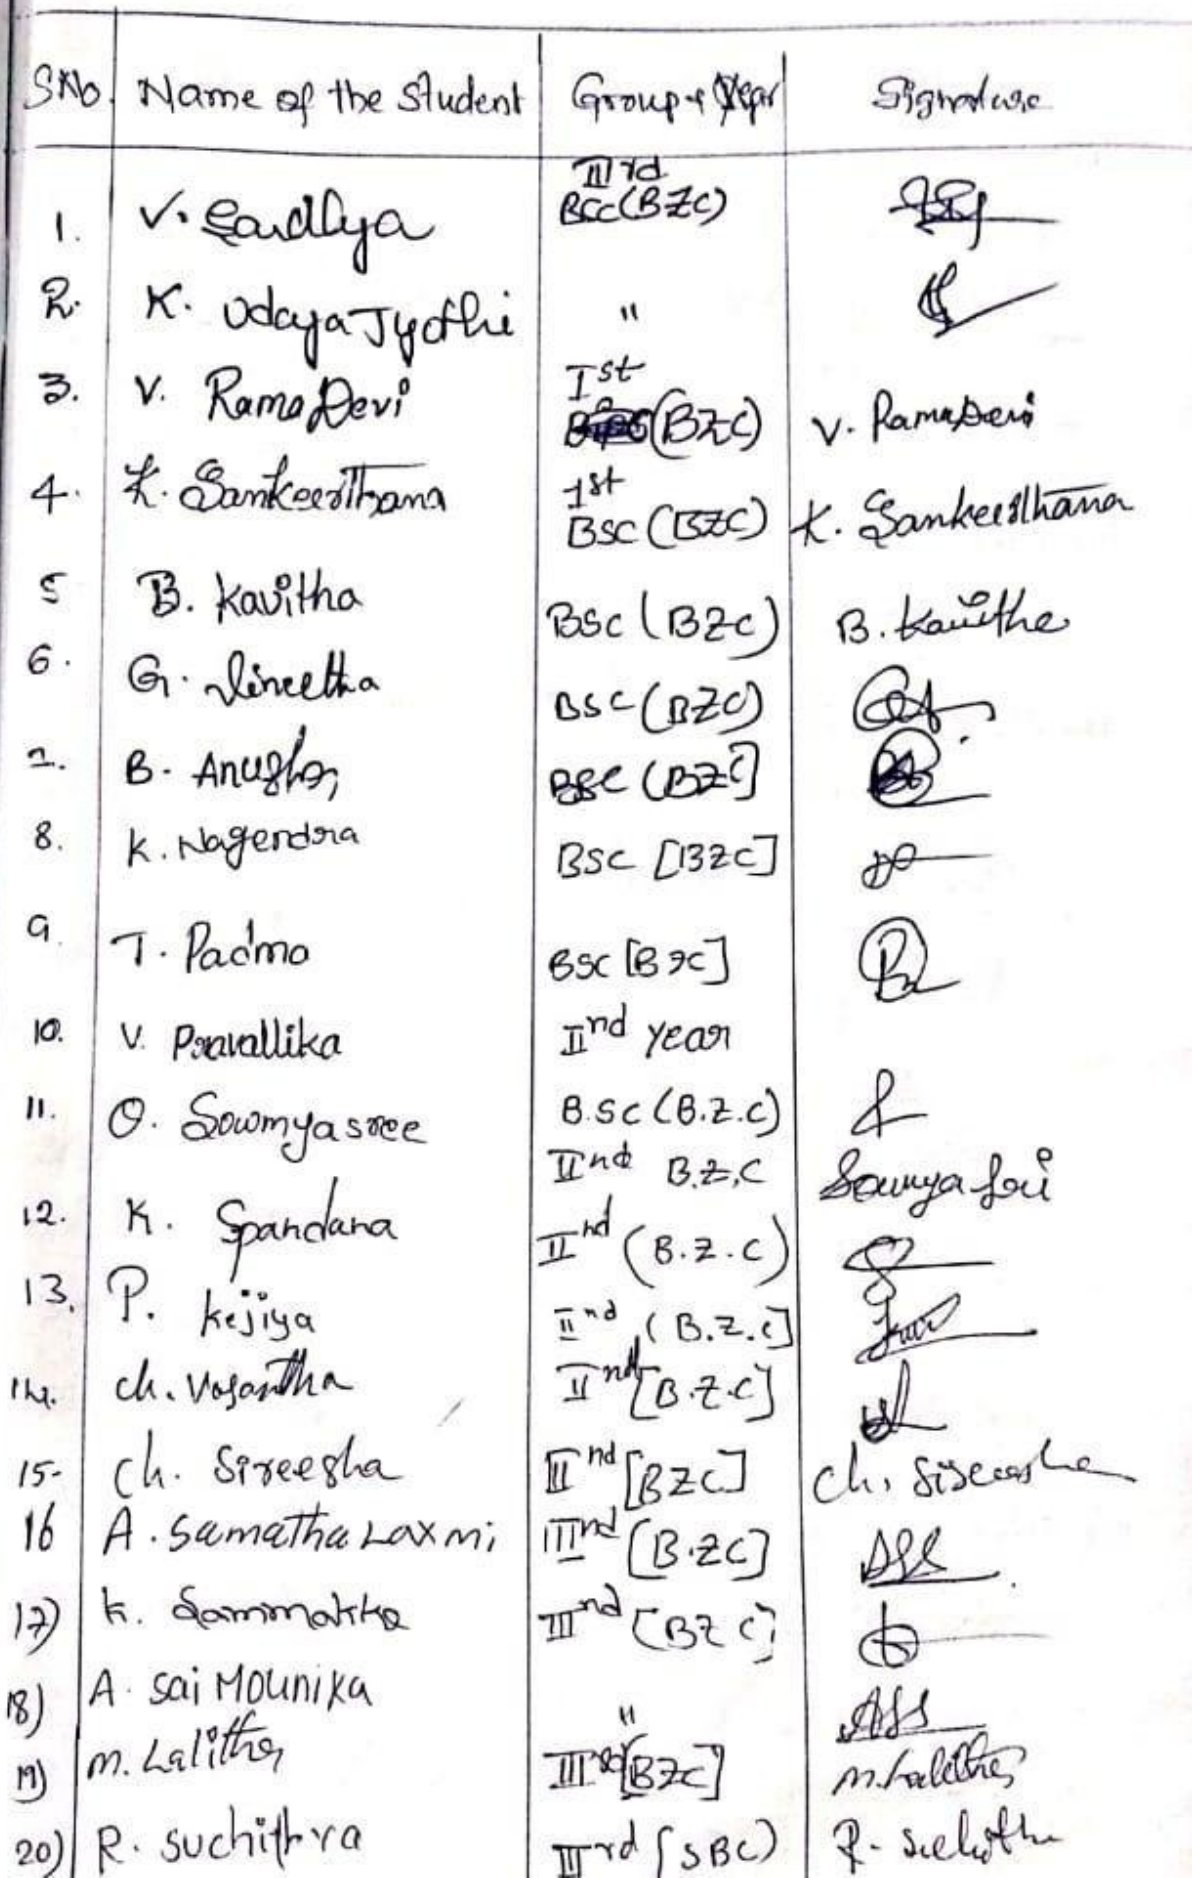 S.No. Name of the Student Group & Year Signature
IIIrd
1. V. Sandhya BSC(BZC)
2. K. Udaya Jyothi "
Ist
3. V. Rama Devi (BZC) V. Rama Devi
1st
4. K. Sankeerthana BSC (BZC) K. Sankeerthana
5 B. Kavitha BSC (BZC) B. Kavitha
6. G. BSC (BZC)
7. B. Anusha BSC (BZC]
8. K. Nagendra BSC [BZC]
9. T. Padma BSC [BZC]
10. V. Pravallika IInd year
11. O. Sowmyasree B.SC (B.Z.C)
IInd B.Z.C Sowmya Sri
12. K. Spandana IInd (B.Z.C)
13. P. Kejiya IInd (B.Z.C]
14. Ch. Vasantha IInd [B.Z.C]
15- Ch. Sireesha IInd [BZC] Ch. Sireesha
16 A. Samatha Laxmi IIInd [B.ZC]
17) K. Sammakka IIInd [BZC]
18) A. Sai Mounika "
19) M. Lalitha IIIrd [BZC] M. Lalitha
20) R. Suchithra IIIrd (SBC) R. Suchithra